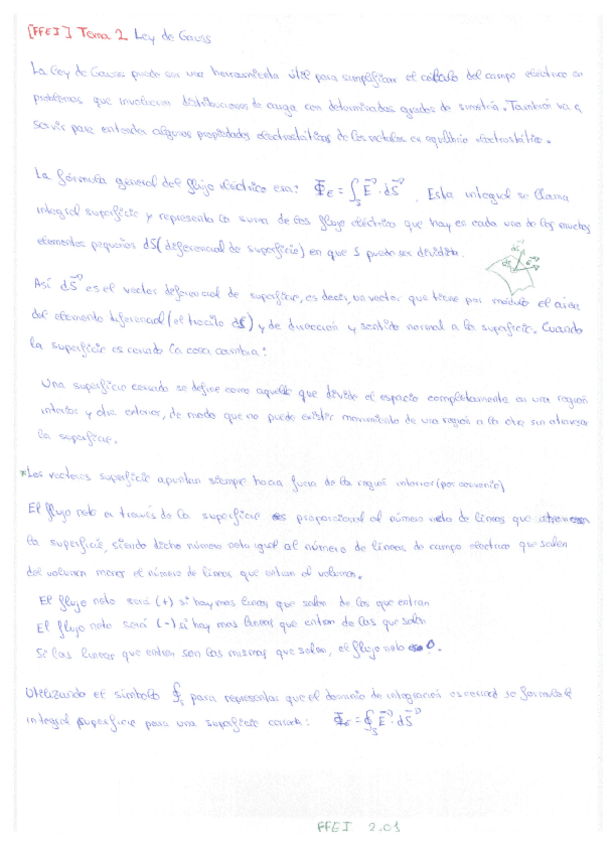 [FFEI] Tema 2 Ley de Gauss
La Ley de Gauss puede ser una herramienta útil para simplificar el cálculo del campo eléctrico en
problemas que involucran distribuciones de carga con determinados grados de simetría. También va a
servir para entender algunas propiedades electrostáticas de los metales en equilibrio electrostático.
La fórmula general del flujo eléctrico era: Φ_E = ∫_S E⃗ · dS⃗. Esta integral se llama
integral superficie y representa la suma de los flujo eléctrico que hay en cada uno de los muchos
elementos pequeños dS (diferencial de superficie) en que S puede ser dividida.
dS⃗
dS E⃗
Así dS⃗ es el vector diferencial de superficie, es decir, un vector que tiene por módulo el área
del elemento diferencial (el trocito dS) y de dirección y sentido normal a la superficie. Cuando
la superficie es cerrada la cosa cambia:
Una superficie cerrada se define como aquella que divide el espacio completamente en una región
interior y otra exterior, de modo que no puede existir movimiento de una región a la otra sin atravesar
la superficie.
*Los vectores superficie apuntan siempre hacia fuera de la región interior (por convenio)
El flujo neto a través de la superficie es proporcional al número neto de líneas que atraviesan
la superficie, siendo dicho número neto igual al número de líneas de campo eléctrico que salen
del volumen menos el número de líneas que entran al volumen.
El flujo neto será (+) si hay mas lineas que salen de las que entran
El flujo neto será (-) si hay mas lineas que entran de las que salen
Si las lineas que entran son las mismas que salen, el flujo neto es 0.
Utilizando el símbolo ∮_S para representar que el dominio de integración es cerrado se formula la
integral superficie para una superficie cerrada: Φ_E = ∮_S E⃗ · dS⃗
FFEI 2.01